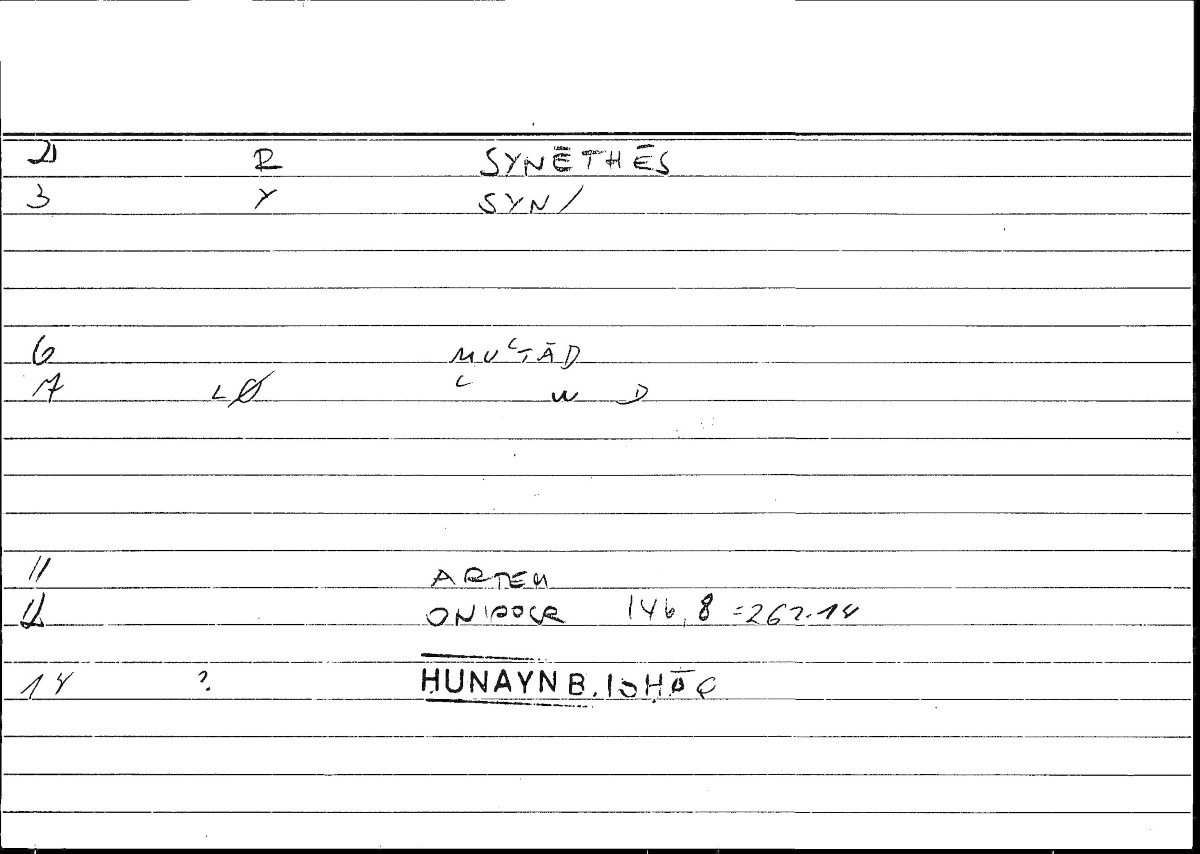 2 R SYNĒTHĒS
3 Y SYN/
6 MUʿTĀD
7 LØ ʿ W D
11 ARTEM
12 ONIROCR 146,8 =262.14
14 ? HUNAYN B. ISḤĀQ